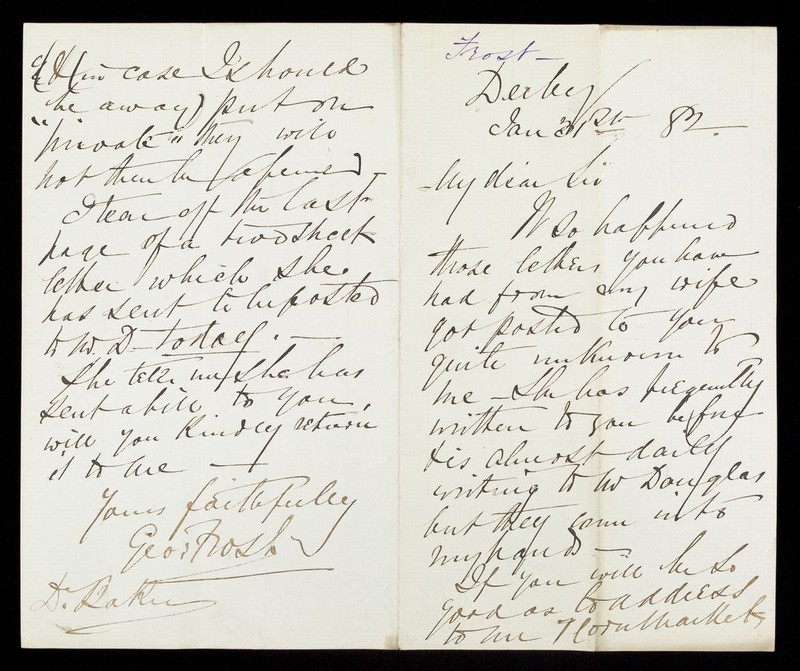 Frost —
Derby
Jan 31st 82.
My dear Sir
It so happened
those letters you have
had from my wife
got posted to you
quite unknown to
me — She has frequently
written to you before
& is almost daily
writing to Mr Douglas
but they come into
my hands —
If you will be so
good as to address
to me 7 Corn Market
& (in case I should
be away) put on
"private" they will
not then be opened —
I tear off the last
page of a two sheet
letter which she
has sent to be posted
to Mr. D — today. —
She tells me she has
sent a bill to you,
will you kindly return
it to me —
Yours faithfully
Geo: Frost
Dr. Baker